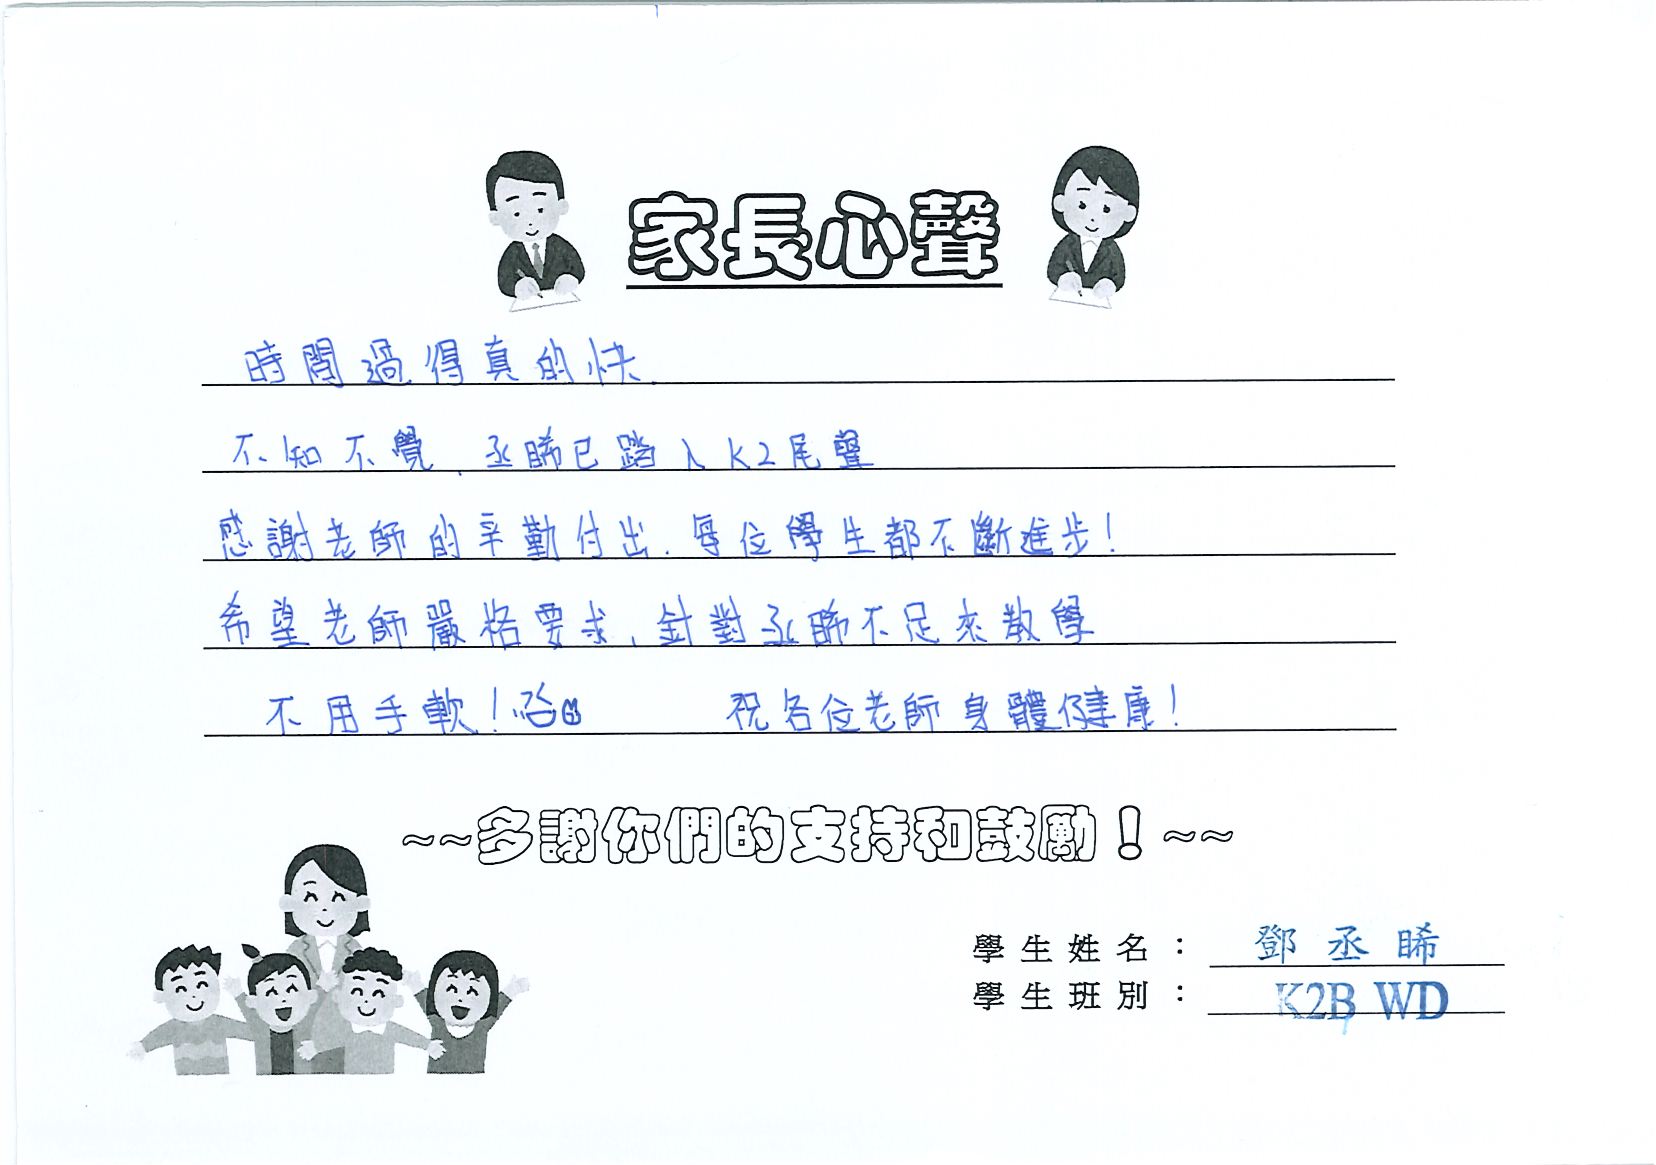 家長心聲
時間過得真的快
不知不覺，丞睎已踏入K2尾聲
感謝老師的辛勤付出，每位學生都不斷進步！
希望老師嚴格要求，針對丞睎不足來教學
不用手軟！哈哈 祝各位老師身體健康！
~~多謝你們的支持和鼓勵！~~
學生姓名：鄧丞睎
學生班別：K2B WD